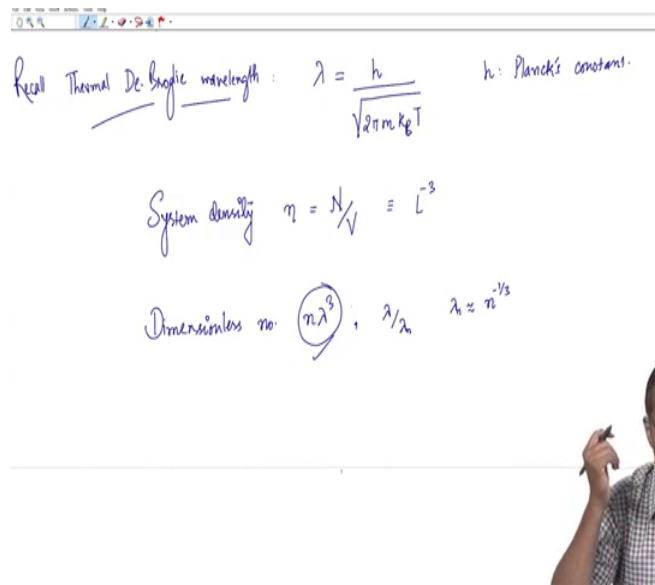 Recall Thermal De-Broglie wavelength : λ = h / √(2π m k_B T) h : Planck's constant.
System density n = N/V ≡ L⁻³
Dimensionless no. nλ³ , λ/λₙ λₙ ≈ n^(-1/3)